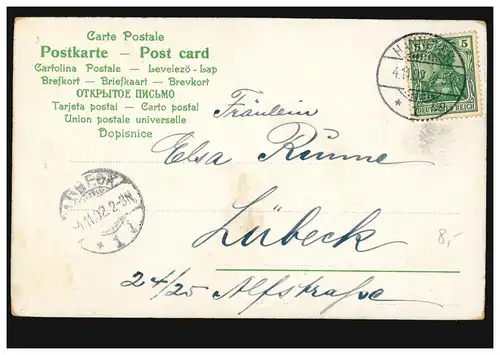 Carte Postale
Postkarte — Post card
Cartolina Postale — Levelező-Lap
Brefkort — Briefkaart — Brevkort
ОТКРЫТОЕ ПИСЬМО
Tarjeta postal — Carto postal
Union postale universelle
Dopisnice
5
DEUTSCHES REICH
4.11.02.
Fräulein
Elsa
Lübeck
4.11.02.2-3N.
* 1
8,-
24/25 Alfstraße